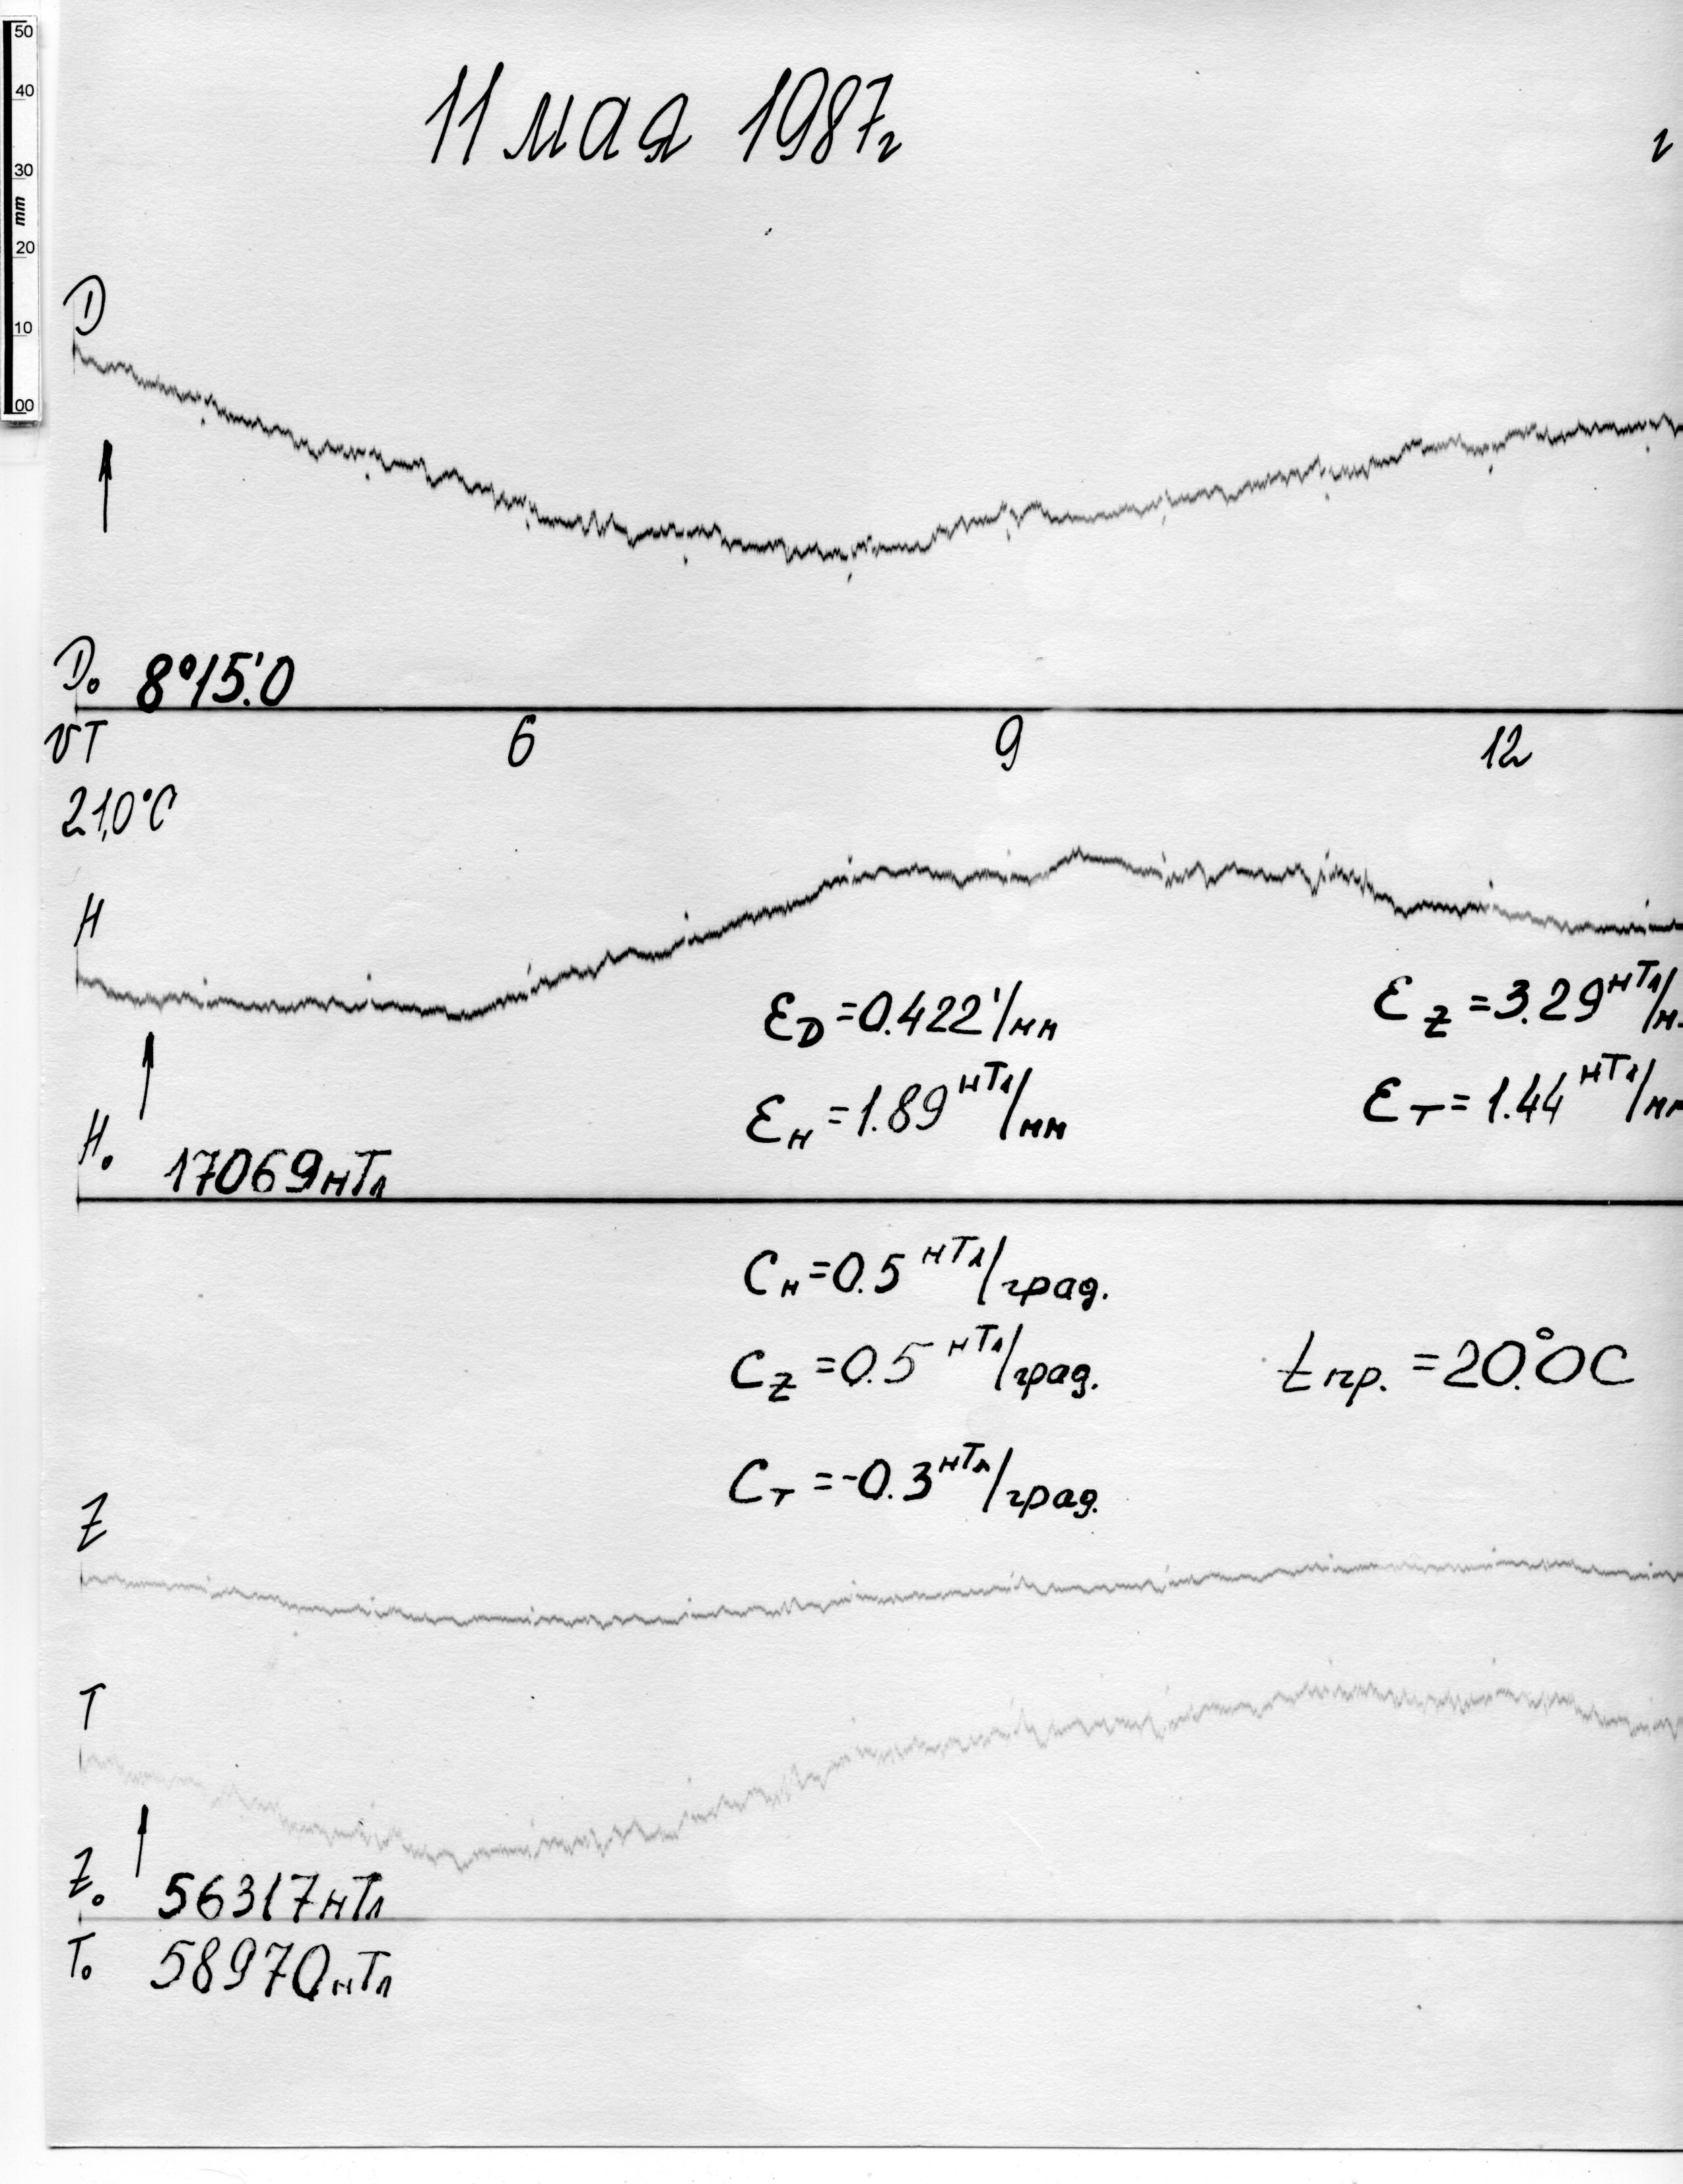 50
40
30
mm
20
10
00
11 мая 1987г
D
D₀ 8°15.'0
UT 6 9 12
21,0°C
H
εD = 0.422'/мм
εZ = 3.29 нТл/м
εH = 1.89 нТл/мм
εT = 1.44 нТл/мм
H₀ 17069нТл
CH = 0.5 нТл/град.
CZ = 0.5 нТл/град.
tпр. = 20.°0C
CT = -0.3 нТл/град.
Z
T
Z₀ 56317нТл
T₀ 58970нТл